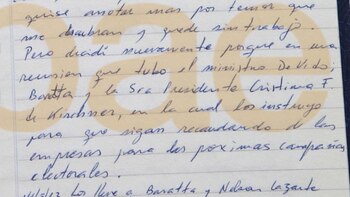 quise anotar mas por temor que
me descubran y quede sin trabajo.
Pero decidí nuevamente porque en una
reunion que tubo el ministro De Vido,
Baratta y la Sra Presidenta Cristina F.
de Kirchner, en la cual los instruyo
para que sigan recaudando de las
empresas para las proximas campañas
electorales.
los lleve a Baratta y Nelson Lazarte